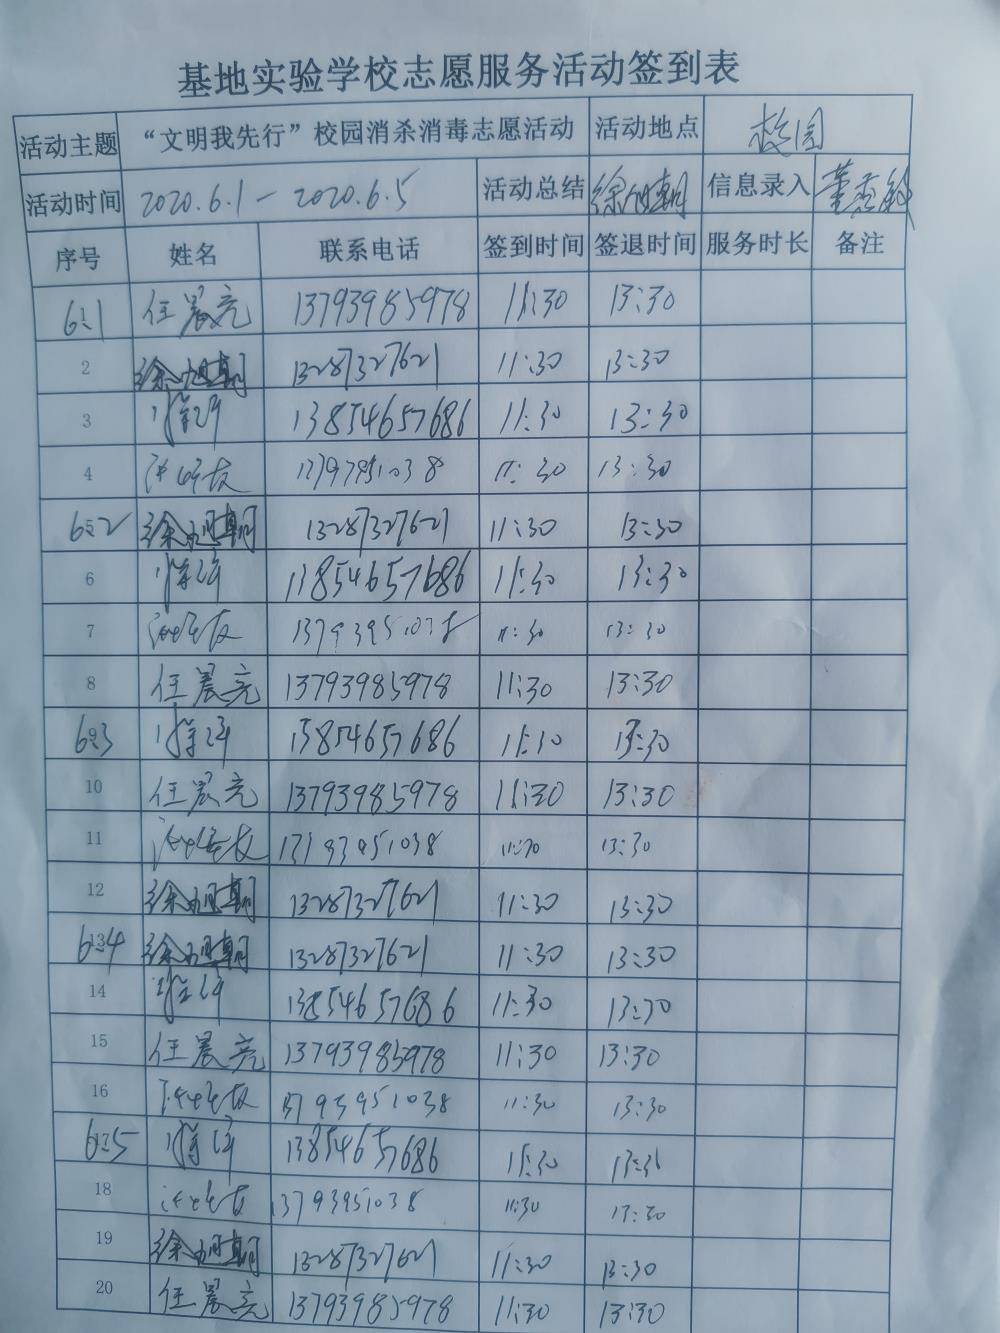 基地实验学校志愿服务活动签到表
活动主题 “文明我先行”校园消杀消毒志愿活动 活动地点 校园
活动时间 2020.6.1 — 2020.6.5 活动总结 徐旭朝 信息录入 董
序号 姓名 联系电话 签到时间 签退时间 服务时长 备注
6.1 任晨亮 13793985978 11:30 13:30
2 徐旭朝 13287327621 11:30 13:30
3 13854657686 11:30 13:30
4 11:30 13:30
6.2 徐旭朝 13287327621 11:30 13:30
6 13854657686 11:30 13:30
7 13793951038 11:30 13:30
8 任晨亮 13793985978 11:30 13:30
6.3 13854657686 11:30 13:30
10 任晨亮 13793985978 11:30 13:30
11 13793951038 11:30 13:30
12 徐旭朝 13287327621 11:30 13:30
6.4 徐旭朝 13287327621 11:30 13:30
14 13854657686 11:30 13:30
15 任晨亮 13793985978 11:30 13:30
16 13793951038 11:30 13:30
6.5 13854657686 11:30 13:30
18 13793951038 11:30 13:30
19 徐旭朝 13287327621 11:30 13:30
20 任晨亮 13793985978 11:30 13:30